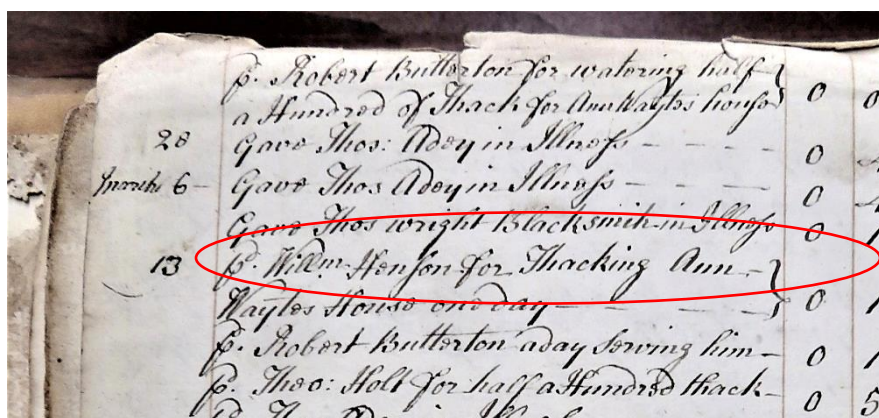 pd. Robert Butterton for watering half 0 0
a Hundred of Thack for Ann Waytes house
28 Gave Thos: Adey in Illness - - - 0 4
6 - Gave Thos Adey in Illness - - - - 0 4
Gave Thos wright Blacksmith in Illness 0 1
13 pd. Willm Henson for Thacking Ann -
Waytes House one day - - - - 0 1
pd. Robert Butterton a day serving him - 0 1
pd. Theo: Holt for half a Hundred thack - 0 5